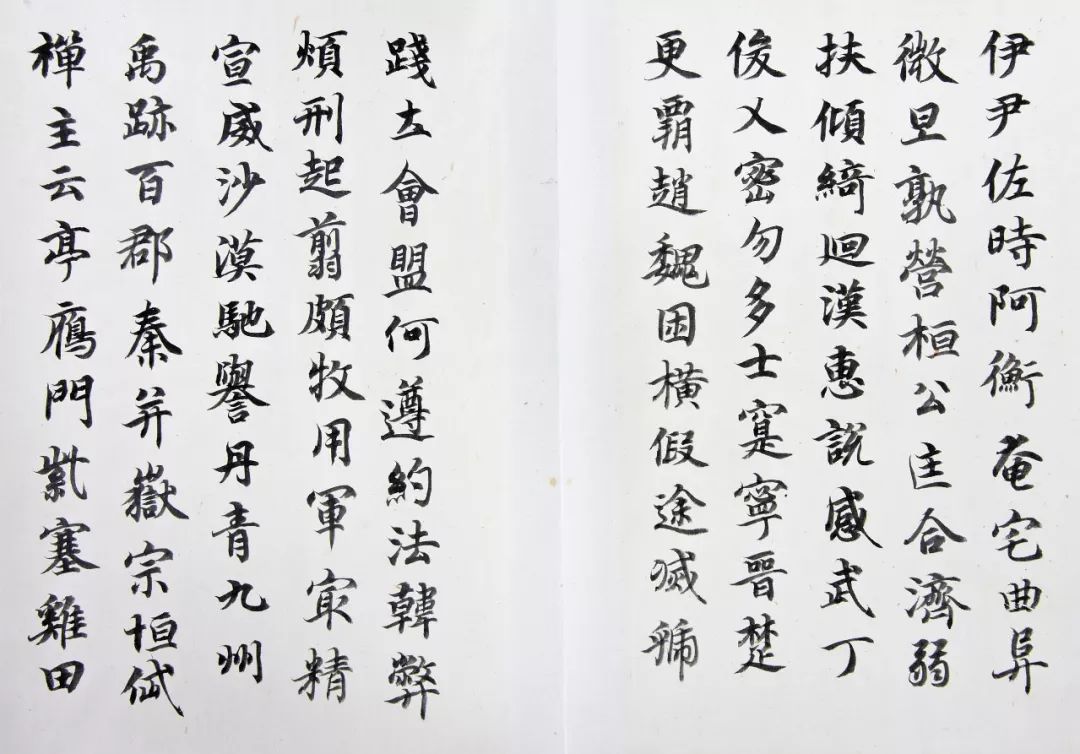 伊尹佐時阿衡奄宅曲阜
微旦孰營桓公匡合濟弱
扶傾綺迴漢惠說感武丁
俊乂密勿多士寔寧晉楚
更霸趙魏困橫假途滅虢
踐土會盟何遵約法韓弊
煩刑起翦頗牧用軍冣精
宣威沙漠馳譽丹青九州
禹跡百郡秦并嶽宗恒岱
禪主云亭鴈門紫塞雞田